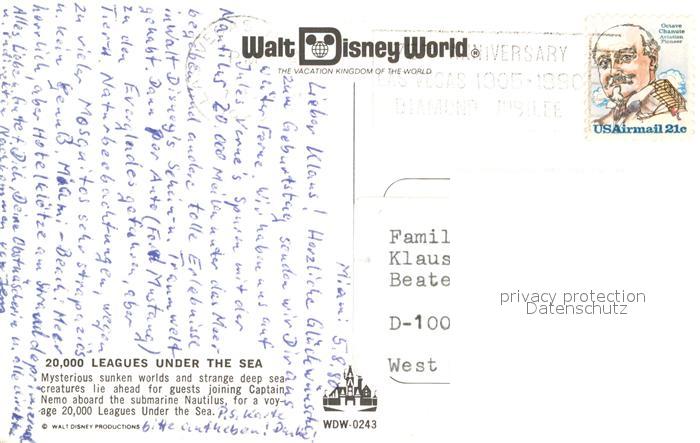 Walt Disney World®
THE VACATION KINGDOM OF THE WORLD
ANNIVERSARY
LAS VEGAS 1905-1980
DIAMOND JUBILEE
Octave
Chanute
Aviation
Pioneer
USAirmail 21c
Miami 5.8.80
Lieber Klaus! Herzliche Glückwünsche
zum Geburtstag senden wir Dir aus
Ferne. Wir haben uns auf
Jules Verne's Spuren mit der
Nautilus 20 000 Meilen unter das Meer
begeben und andere tolle Erlebnisse
in Walt Disney's Schein- u. Traumwelt
gehabt. Dann per Auto (Ford Mustang)
zu den Everglades gefahren, aber
Tier- u. Naturbeobachtungen, wegen
zu vieler Mosquitos sehr strapaziös
u. kein Genuß. Miami-Beach: Meer
herrlich, aber Hotelklötze am Strand
Alles Liebe
P.S. Karte
bitte aufheben! Danke!
Famil
Klaus
Beate
D-100
West
privacy protection
Datenschutz
20,000 LEAGUES UNDER THE SEA
Mysterious sunken worlds and strange deep sea
creatures lie ahead for guests joining Captain
Nemo aboard the submarine Nautilus, for a voy-
age 20,000 Leagues Under the Sea.
© WALT DISNEY PRODUCTIONS
WDW-0243